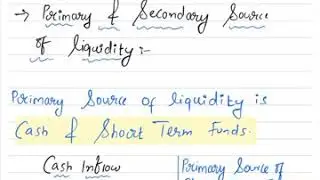 → Primary & Secondary Source
of liquidity :-
Primary Source of liquidity is
Cash & Short Term Funds.
Cash Inflow
Primary Source of